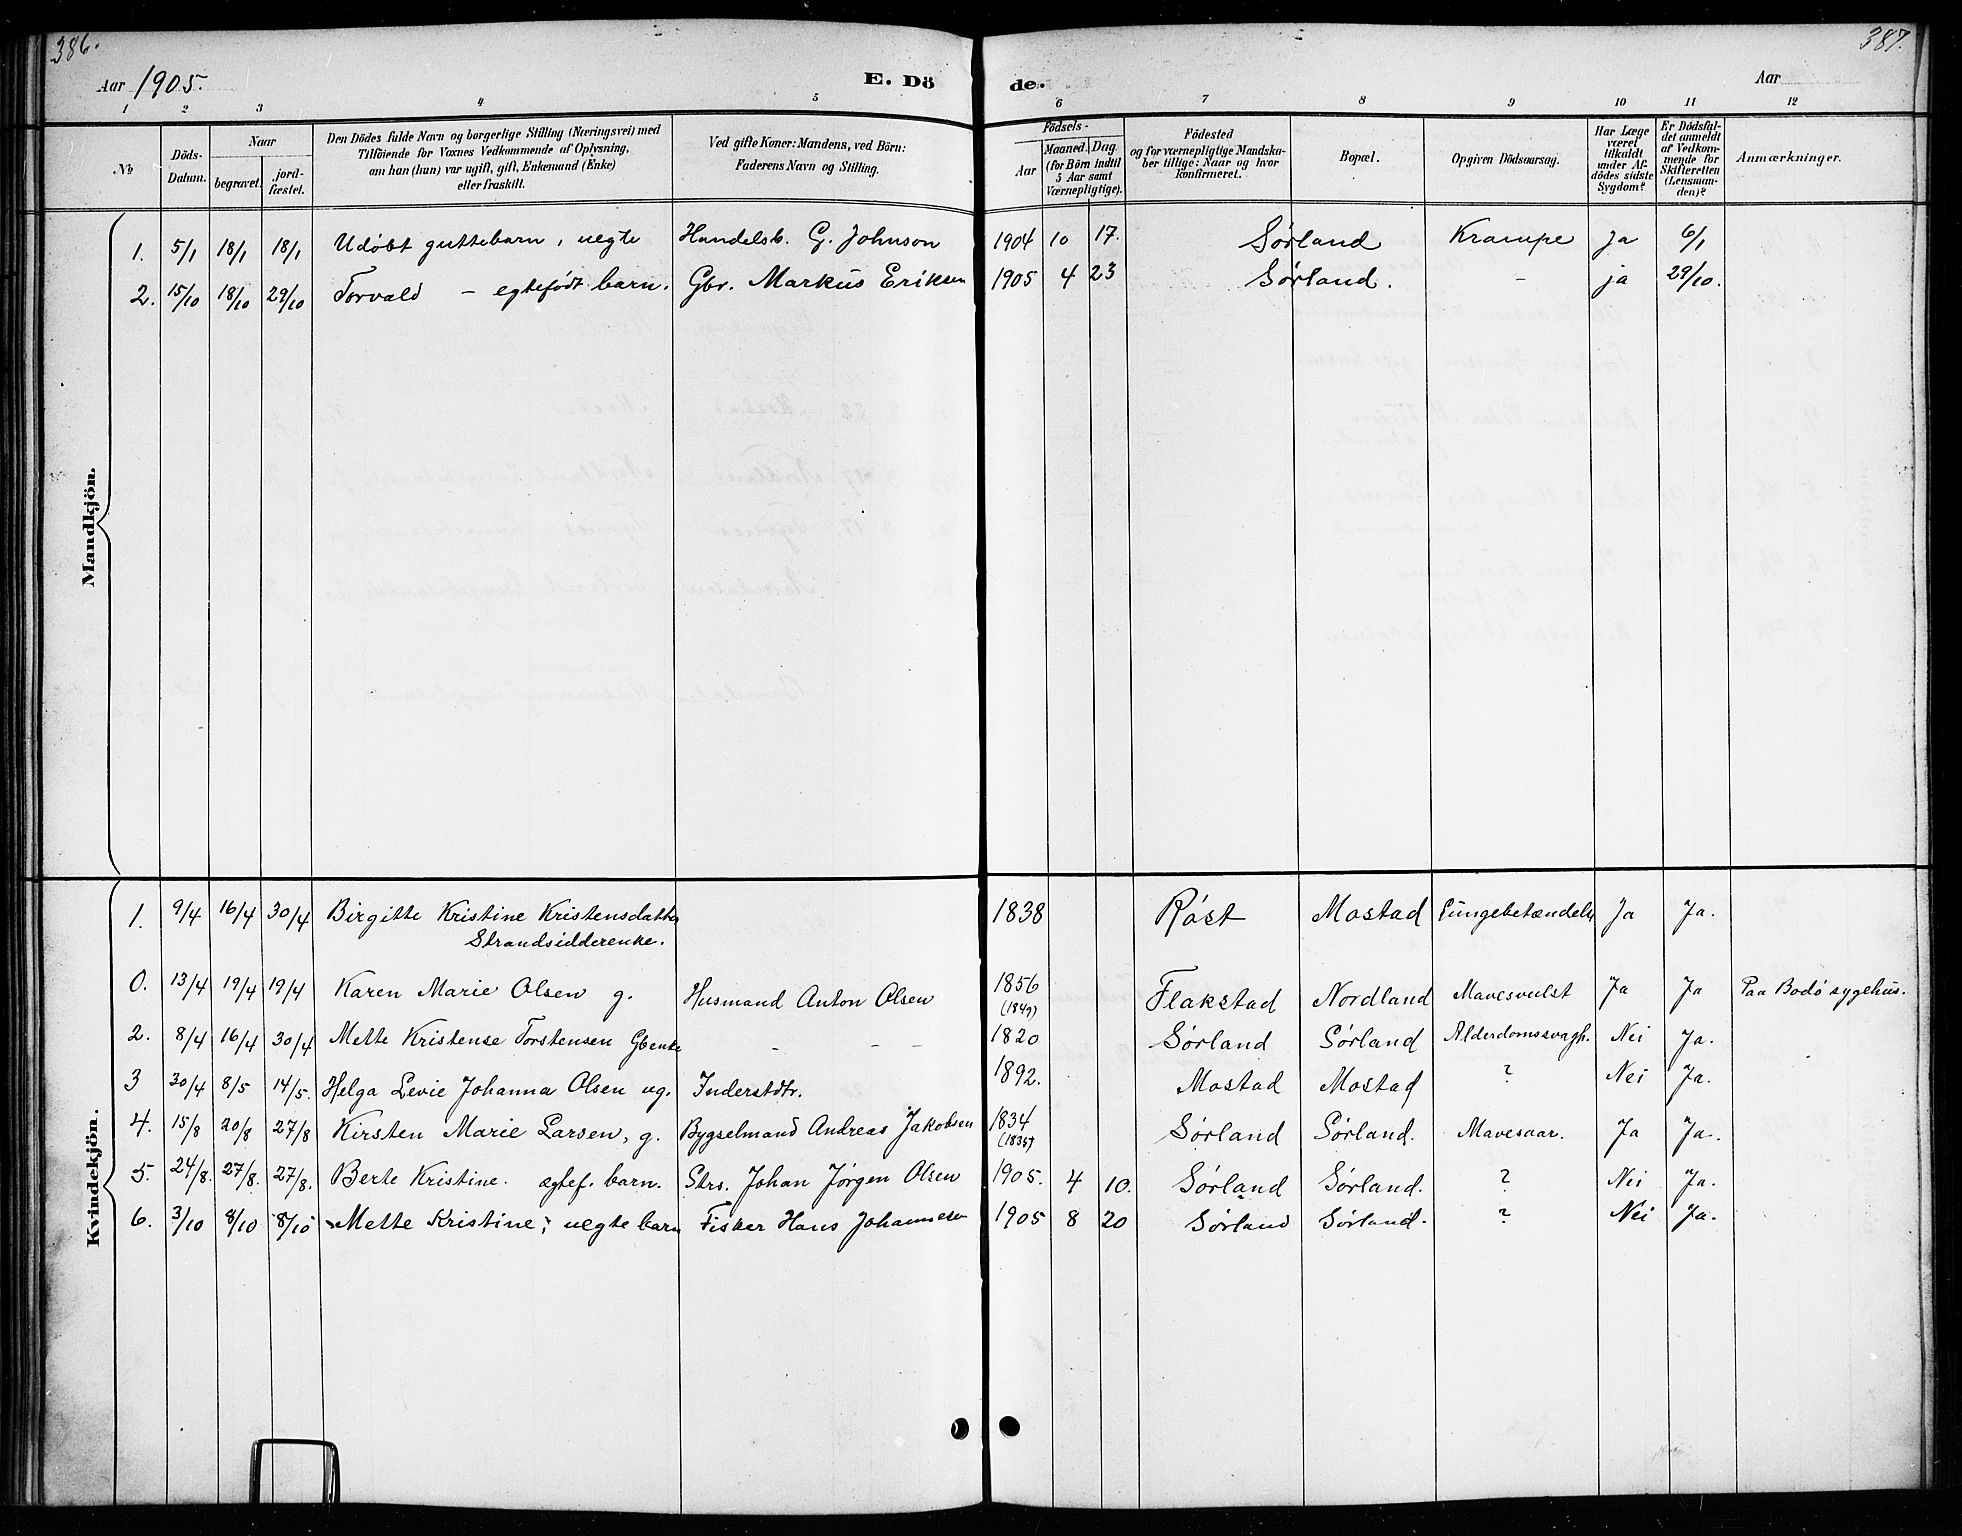 386.
387.
Aar 1905.
E. Dö
de.
Aar
1 2 3 4 5 6 7 8 9 10 11 12
№
Döds-Datum.
Naar
begravet.
jord-fæstet.
Den Dödes fulde Navn og borgerlige Stilling (Næringsvei) med
Tilföiende for Voxnes Vedkommende af Oplysning,
om han (hun) var ugift, gift, Enkemand (Enke)
eller fraskilt.
Ved gifte Koner: Mandens, ved Börn:
Faderens Navn og Stilling.
Födsels-
Aar
Maaned. Dag
(for Börn indtil
5 Aar samt
Værnepligtige).
Födested
og for værnepligtige Mandska-
ber tillige: Naar og hvor
konfirmeret.
Bopæl.
Opgiven Dödsaarsag.
Har Læge
været
tilkaldt
under Af-
dödes sidste
Sygdom?
Er Dödsfal-
det anmeldt
af Vedkom-
mende for
Skifteretten
(Lensman-
den)?
Anmærkninger.
Mandkjön.
1. 5/1 18/1 18/1 Udøbt guttebarn, uegte Handelsb. G. Johnson 1904 10 17. Sørland Krampe Ja 6/1
2. 15/10 18/10 29/10 Torvald – egtefødt barn. Gbr. Markus Eriksen 1905 4 23 Sørland. – ja 29/10.
Kvindekjön.
1. 9/4 16/4 30/4 Birgitte Kristine Kristensdatter 1838 Røst Mostad Lungebetændelse Ja Ja.
Strandsidderenke.
0. 13/4 19/4 19/4 Karen Marie Olsen g. Husmand Anton Olsen 1856 (1849) Flakstad Nordland Mavesvulst Ja Ja Paa Bodø sygehus.
2. 8/4 16/4 30/4 Mette Kristense Torstensen Gbenke – – – 1820 Sørland Sørland Alderdomssvagh. Nei Ja.
3 30/4 8/5 14/5. Helga Levie Johanna Olsen ug. Inderstdtr. 1892. Mostad Mostad ? Nei Ja.
4. 15/8 20/8 27/8 Kirsten Marie Larsen, g. Bygselmand Andreas Jakobsen 1834 (1835) Sørland Sørland. Mavesaar. Ja Ja.
5. 24/8. 27/8. 27/8. Berte Kristine. ægtef. barn. Strs. Johan Jørgen Olsen 1905. 4 10. Sørland Sørland. ? Nei Ja.
6. 3/10 8/10 8/10 Mette Kristine, uegte barn Fisker Hans Johannesen 1905 8 20 Sørland Sørland. ? Nei Ja.